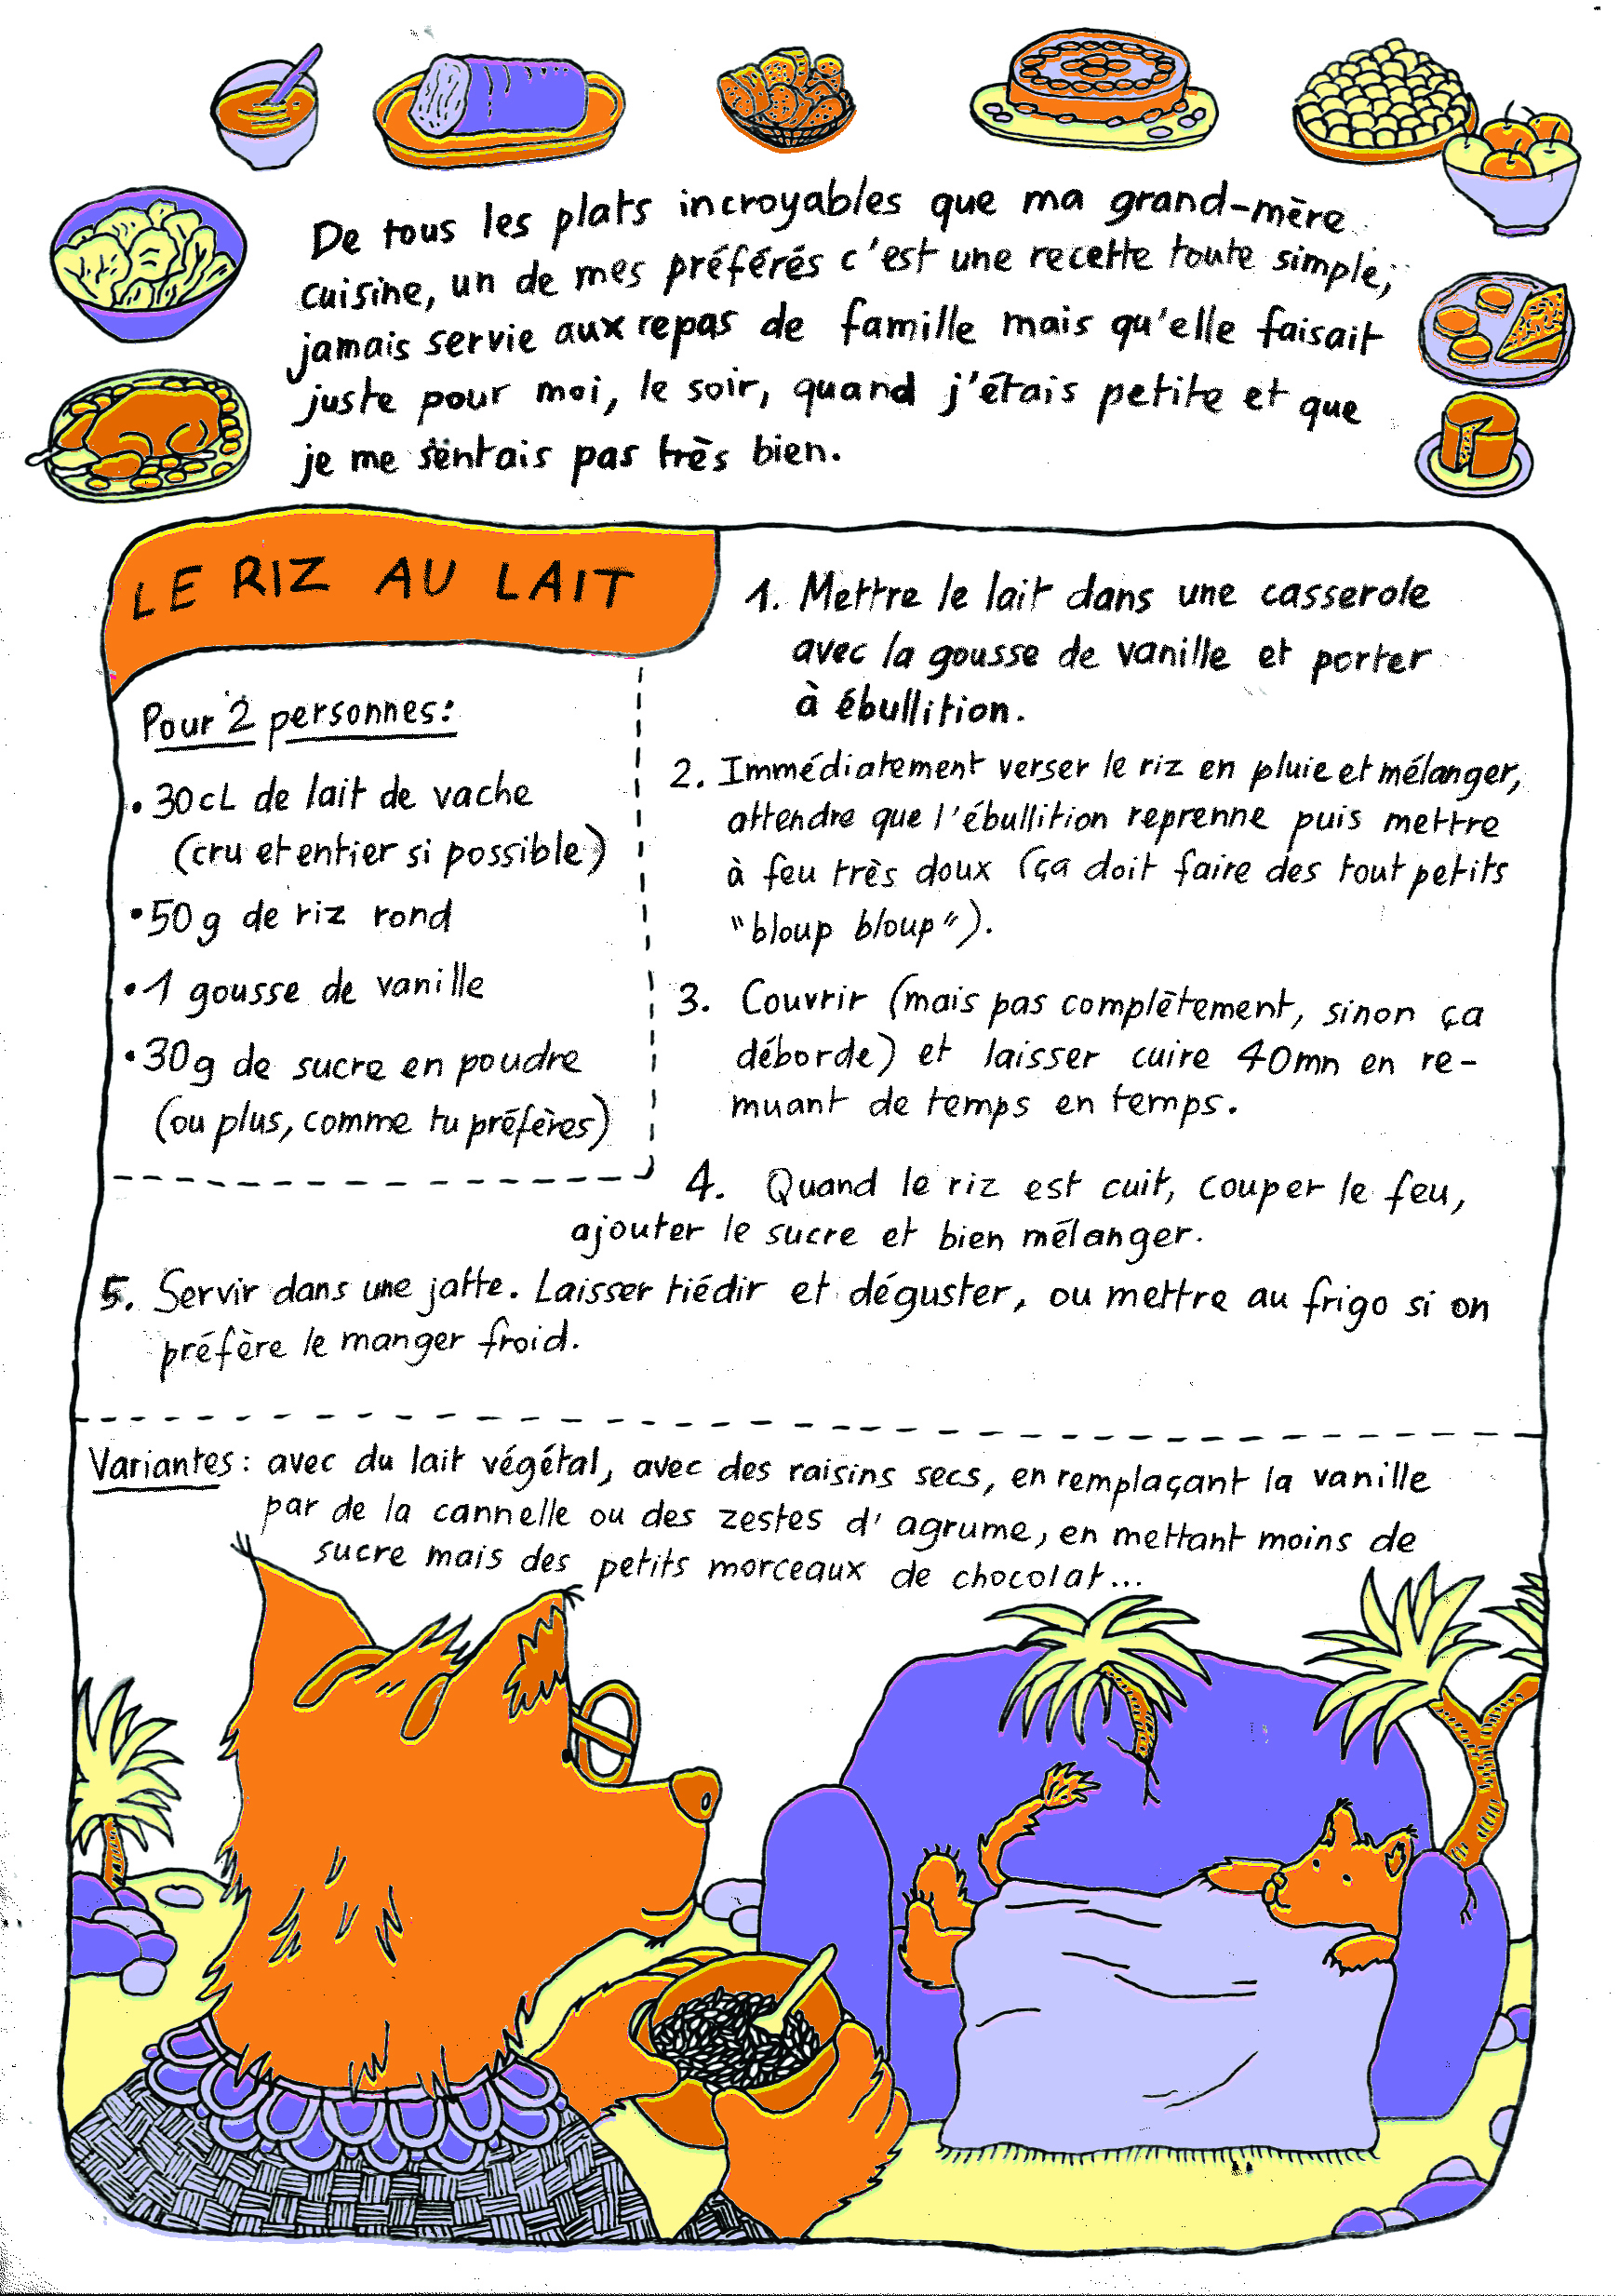 De tous les plats incroyables que ma grand-mère
cuisine, un de mes préférés c'est une recette toute simple,
jamais servie aux repas de famille mais qu'elle faisait
juste pour moi, le soir, quand j'étais petite et que
je me sentais pas très bien.
LE RIZ AU LAIT
Pour 2 personnes:
• 30cL de lait de vache
(cru et entier si possible)
• 50g de riz rond
• 1 gousse de vanille
• 30g de sucre en poudre
(ou plus, comme tu préfères)
1. Mettre le lait dans une casserole
avec la gousse de vanille et porter
à ébullition.
2. Immédiatement verser le riz en pluie et mélanger,
attendre que l'ébullition reprenne puis mettre
à feu très doux (ça doit faire des tout petits
"bloup bloup").
3. Couvrir (mais pas complètement, sinon ça
déborde) et laisser cuire 40mn en re-
muant de temps en temps.
4. Quand le riz est cuit, couper le feu,
ajouter le sucre et bien mélanger.
5. Servir dans une jatte. Laisser tiédir et déguster, ou mettre au frigo si on
préfère le manger froid.
Variantes : avec du lait végétal, avec des raisins secs, en remplaçant la vanille
par de la cannelle ou des zestes d'agrume, en mettant moins de
sucre mais des petits morceaux de chocolat...